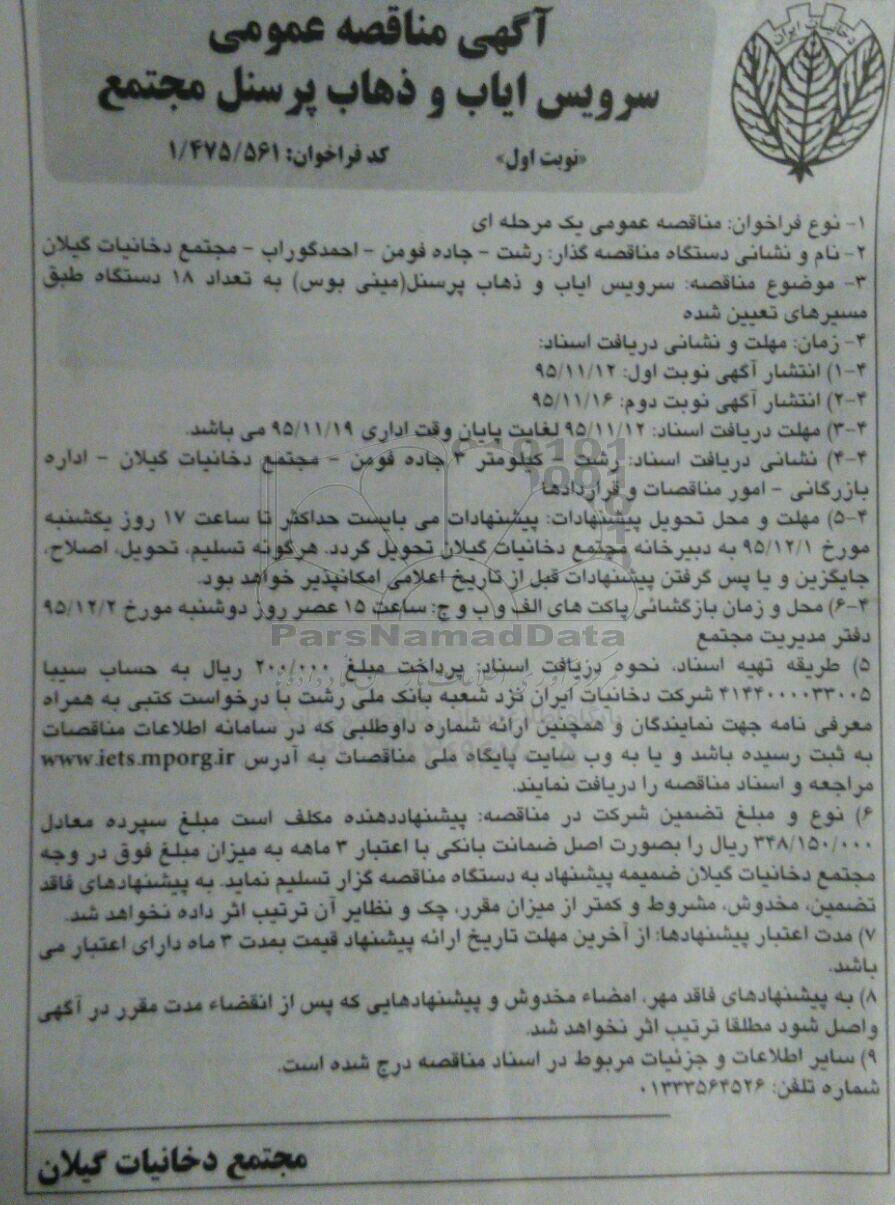 دخانیات ایران
آگهی مناقصه عمومی
سرویس ایاب و ذهاب پرسنل مجتمع
«نوبت اول» کد فراخوان: ۱/۴۷۵/۵۶۱
۱- نوع فراخوان: مناقصه عمومی یک مرحله ای
۲- نام و نشانی دستگاه مناقصه گذار: رشت - جاده فومن - احمدگوراب - مجتمع دخانیات گیلان
۳- موضوع مناقصه: سرویس ایاب و ذهاب پرسنل(مینی بوس) به تعداد ۱۸ دستگاه طبق
مسیرهای تعیین شده
۴- زمان: مهلت و نشانی دریافت اسناد:
۴-۱) انتشار آگهی نوبت اول: ۹۵/۱۱/۱۲
۴-۲) انتشار آگهی نوبت دوم: ۹۵/۱۱/۱۶
۴-۳) مهلت دریافت اسناد: ۹۵/۱۱/۱۲ لغایت پایان وقت اداری ۹۵/۱۱/۱۹ می باشد.
۴-۴) نشانی دریافت اسناد: رشت - کیلومتر ۳ جاده فومن - مجتمع دخانیات گیلان - اداره
بازرگانی - امور مناقصات و قراردادها
۴-۵) مهلت و محل تحویل پیشنهادات: پیشنهادات می بایست حداکثر تا ساعت ۱۷ روز یکشنبه
مورخ ۹۵/۱۲/۱ به دبیرخانه مجتمع دخانیات گیلان تحویل گردد. هرگونه تسلیم، تحویل، اصلاح،
جایگزین و یا پس گرفتن پیشنهادات قبل از تاریخ اعلامی امکانپذیر خواهد بود.
۴-۶) محل و زمان بازگشائی پاکت های الف و ب و ج: ساعت ۱۵ عصر روز دوشنبه مورخ ۹۵/۱۲/۲
دفتر مدیریت مجتمع
ParsNamadData
۵) طریقه تهیه اسناد، نحوه دریافت اسناد: پرداخت مبلغ ۲۰۰/۰۰۰ ریال به حساب سیبا
۴۱۴۴۰۰۰۰۳۳۰۰۵ شرکت دخانیات ایران نزد شعبه بانک ملی رشت با درخواست کتبی به همراه
معرفی نامه جهت نمایندگان و همچنین ارائه شماره داوطلبی که در سامانه اطلاعات مناقصات
به ثبت رسیده باشد و یا به وب سایت پایگاه ملی مناقصات به آدرس www.iets.mporg.ir
مراجعه و اسناد مناقصه را دریافت نمایند.
۶) نوع و مبلغ تضمین شرکت در مناقصه: پیشنهاددهنده مکلف است مبلغ سپرده معادل
۳۴۸/۱۵۰/۰۰۰ ریال را بصورت اصل ضمانت بانکی با اعتبار ۳ ماهه به میزان مبلغ فوق در وجه
مجتمع دخانیات گیلان ضمیمه پیشنهاد به دستگاه مناقصه گزار تسلیم نماید. به پیشنهادهای فاقد
تضمین، مخدوش، مشروط و کمتر از میزان مقرر، چک و نظایر آن ترتیب اثر داده نخواهد شد.
۷) مدت اعتبار پیشنهادها: از آخرین مهلت تاریخ ارائه پیشنهاد قیمت بمدت ۳ ماه دارای اعتبار می
باشد.
۸) به پیشنهادهای فاقد مهر، امضاء مخدوش و پیشنهادهایی که پس از انقضاء مدت مقرر در آگهی
واصل شود مطلقا ترتیب اثر نخواهد شد.
۹) سایر اطلاعات و جزئیات مربوط در اسناد مناقصه درج شده است.
شماره تلفن: ۰۱۳۳۳۵۶۴۵۲۶
مجتمع دخانیات گیلان